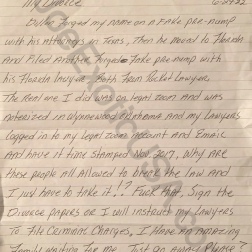 My Divorce
forged my name on a Fake pre-nump
with his Attorneys in Texas, Then he moved to Florida
and Filed Another Forged Fake pre-nump with
his Florida Lawyer. Both From Pocket Lawyer
The Real one I did was on legal zoom and was
notorized in Wynnewood Oklahoma and my Lawyers
logged in to my Legal zoom Account and Email
and have it time stamped Nov, 2017, Why are
these people all Allowed to break the law and
I just have to take it!? Fuck that, Sign the
Divorce papers or I will instruct my Lawyers
To File Criminal Charges, I Have an amazing
waiting for me. Just an